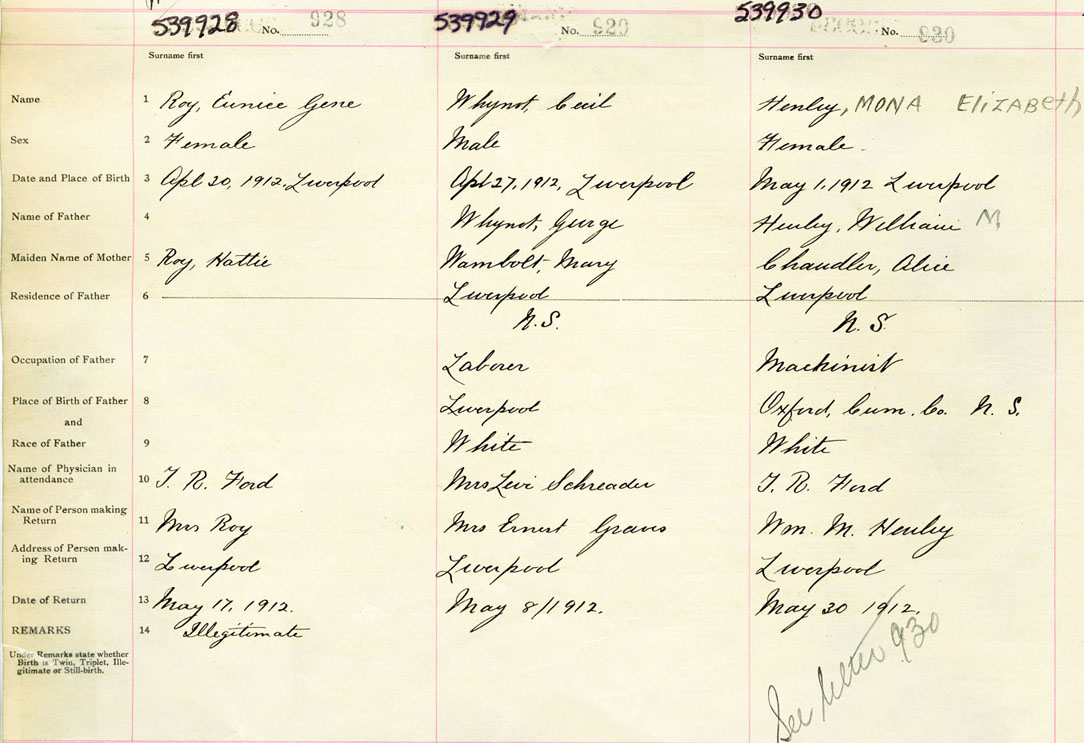 539928 No. 928 539929 No. 929 539930 No. 930
Surname first Surname first Surname first
Name 1 Roy, Eunice Gene Whynot, Cecil Henley, MONA ELIZABeth
Sex 2 Female Male Female
Date and Place of Birth 3 Apl 20, 1912, Liverpool Apl 27, 1912, Liverpool May 1, 1912 Liverpool
Name of Father 4 Whynot, George Henley, William M
Maiden Name of Mother 5 Roy, Hattie Wambolt, Mary Chandler, Alice
Residence of Father 6 Liverpool Liverpool
N.S. N.S.
Occupation of Father 7 Laborer Machinist
Place of Birth of Father 8 Liverpool Oxford, Cum. Co. N.S.
and
Race of Father 9 White White
Name of Physician in
attendance 10 J. R. Ford Mrs Levi Schreader J. R. Ford
Name of Person making
Return 11 Mrs Roy Mrs Ernest Graves Wm. M. Henley
Address of Person mak-
ing Return 12 Liverpool Liverpool Liverpool
Date of Return 13 May 17, 1912. May 8/1912. May 30 1912.
REMARKS 14 Illegitimate
Under Remarks state whether
Birth is Twin, Triplet, Ille-
gitimate or Still-birth.
See letter 930